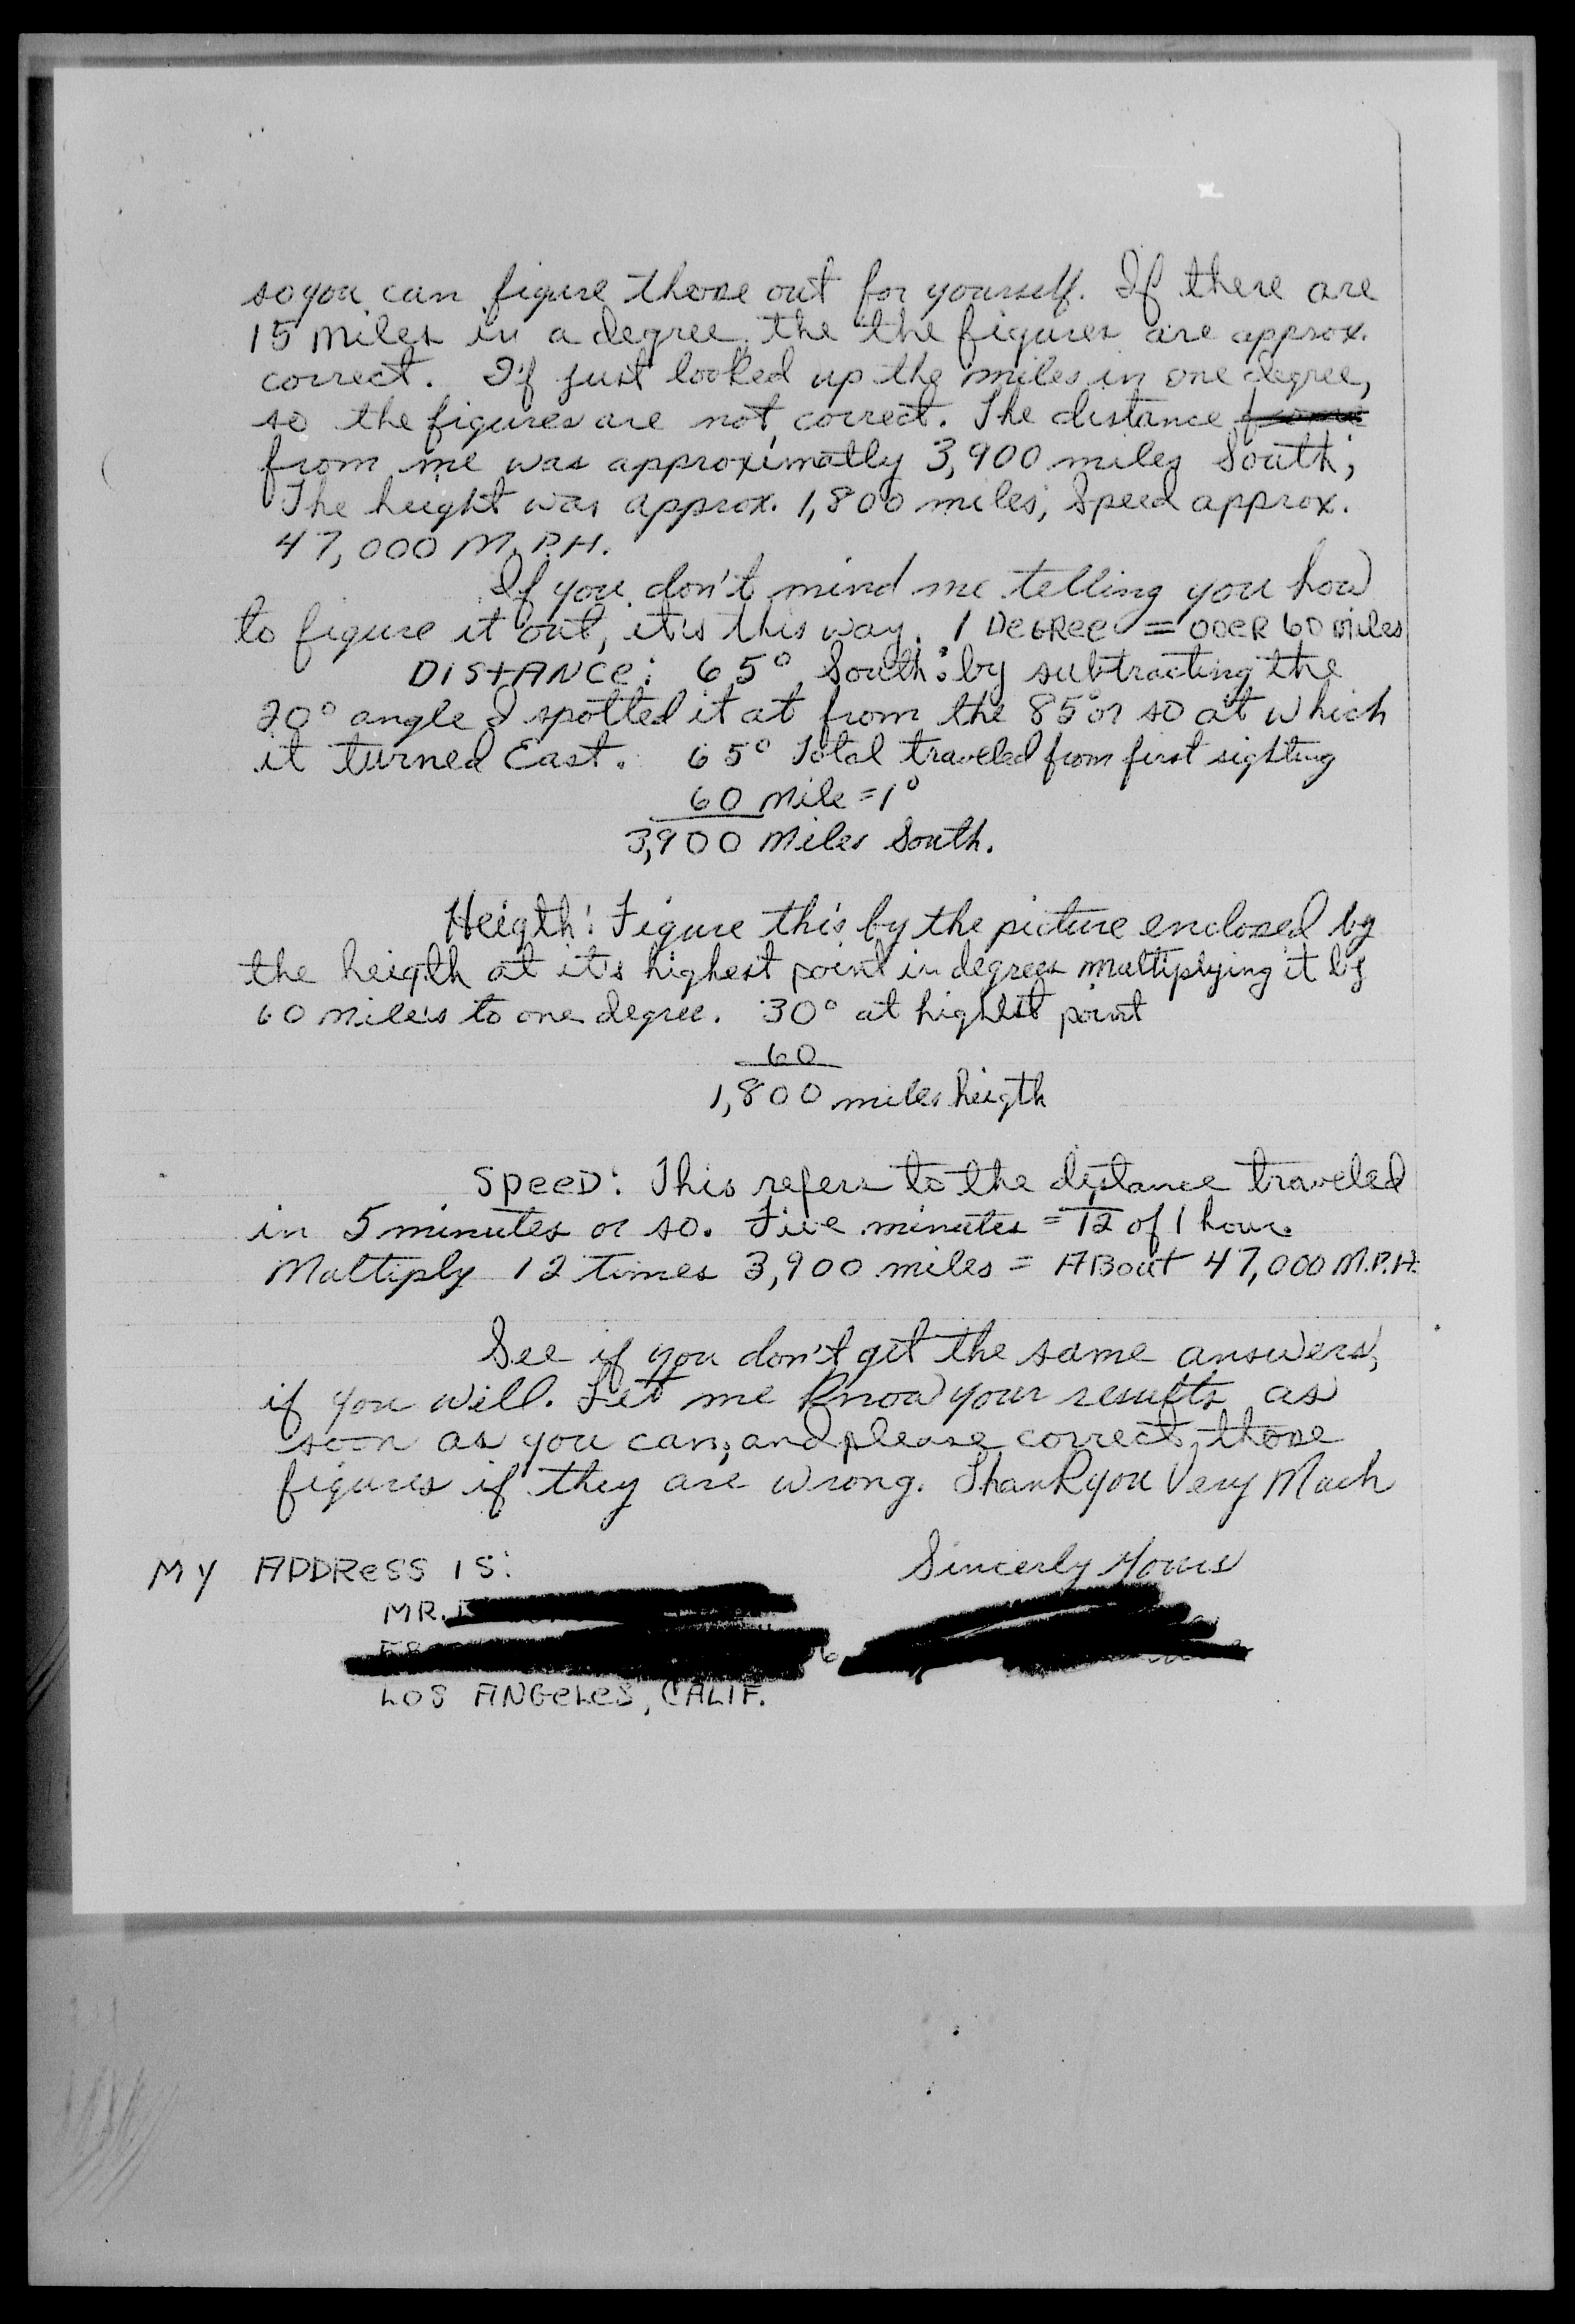 so you can figure those out for yourself. If there are
15 miles in a degree the the figures are approx.
correct. I'f just looked up the miles in one degree,
so the figures are not correct. The distance
from me was approximatly 3,900 miles South;
The height was approx. 1,800 miles; Speed approx.
47,000 M.P.H.
If you don't mind me telling you how
to figure it out, it's this way. 1 DeGRee = oveR 60 miles
DISTANCe: 65° South: by subtracting the
20° angle I spotted it at from the 85° or so at which
it turned East. 65° Total traveled from first sighting
60 mile = 1°
3,900 miles South.
Heigth: Figure this by the picture enclosed by
the heigth at it's highest point in degrees multiplying it by
60 miles to one degree. 30° at highest point
60
1,800 miles heigth
SpeeD: This refers to the distance traveled
in 5 minutes or so. Five minutes = 1/12 of 1 hour.
Multiply 12 times 3,900 miles = ABout 47,000 M.P.H.
See if you don't get the same answers,
if you will. Let me know your results as
soon as you can, and please correct those
figures if they are wrong. Thank you Very Much
Sincerly Yours
MY ADDReSS IS:
MR.
LOS ANGeLeS, CALIF.